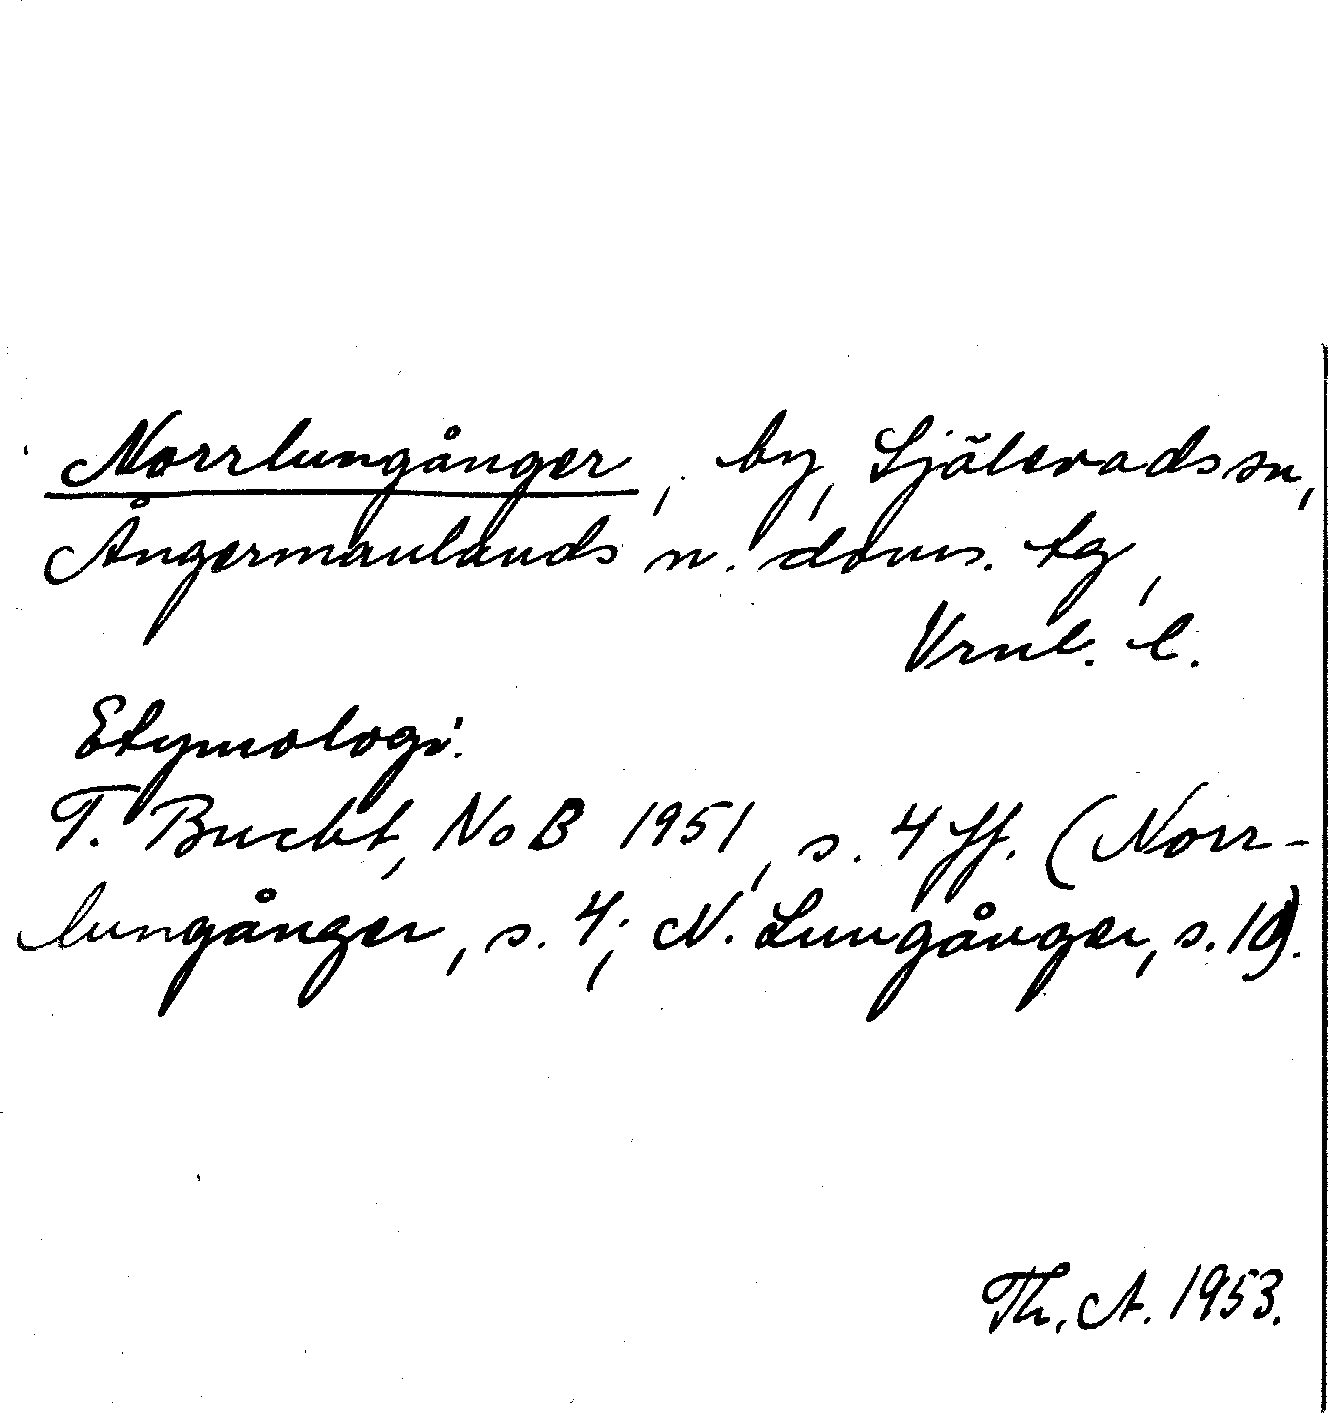 Norrlungånger, by, Själevads sn,
Ångermanlands n. doms. tg,
Vrnl. l.
Etymologi:
T. Bucht, NoB 1951, s. 4 ff. (Norr-
lungånger, s. 4; N. Lungånger, s. 10).
Th. A. 1953.